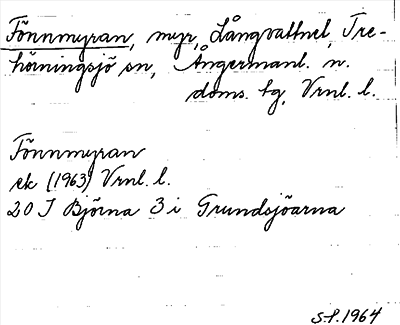 Fönnmyran, myr, Långvattnet, Tre-
hörningsjö sn, Ångermanl. n.
doms. tg, Vrnl. l.
Fönnmyran
ek (1963) Vrnl. l.
20 I Björna 3 i Grundsjöarna
S-P. 1964